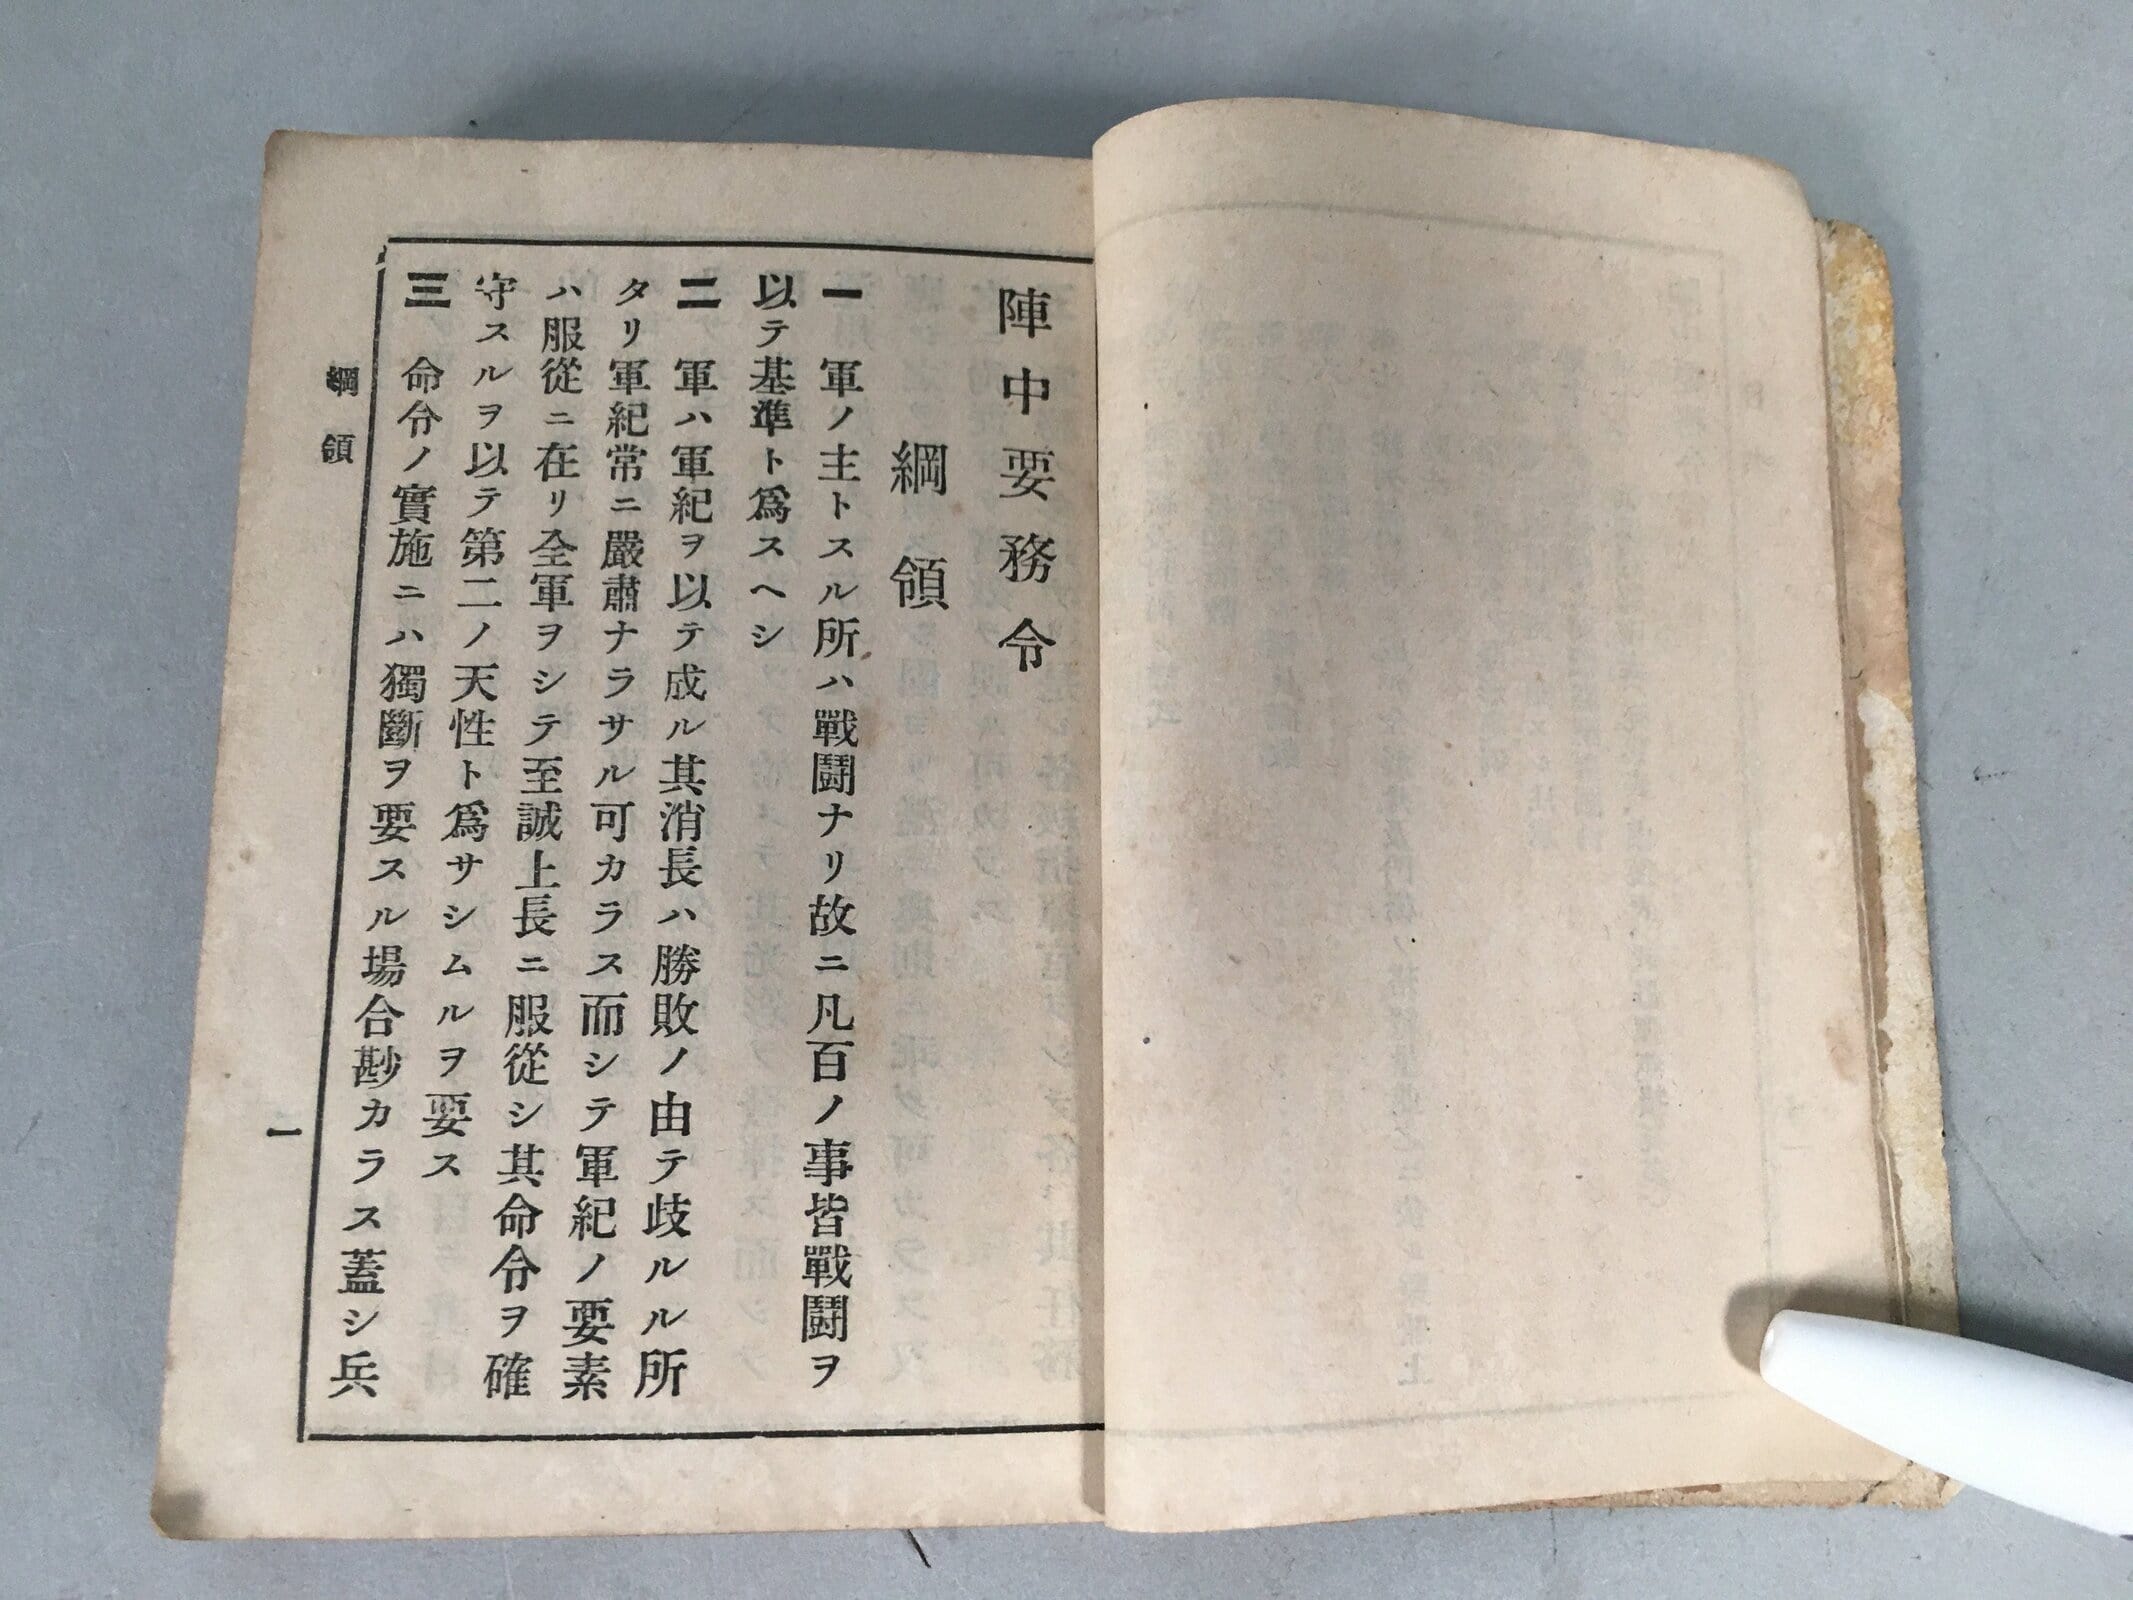 陣中要務令
綱領
一 軍ノ主トスル所ハ戰鬪ナリ故ニ凡百ノ事皆戰鬪ヲ
以テ基準ト爲スヘシ
二 軍ハ軍紀ヲ以テ成ル其消長ハ勝敗ノ由テ歧ルル所
タリ軍紀常ニ嚴肅ナラサル可カラス而シテ軍紀ノ要素
ハ服從ニ在リ全軍ヲシテ至誠上長ニ服從シ其命令ヲ確
守スルヲ以テ第二ノ天性ト爲サシムルヲ要ス
三 命令ノ實施ニハ獨斷ヲ要スル場合尠カラス蓋シ兵
綱領
一